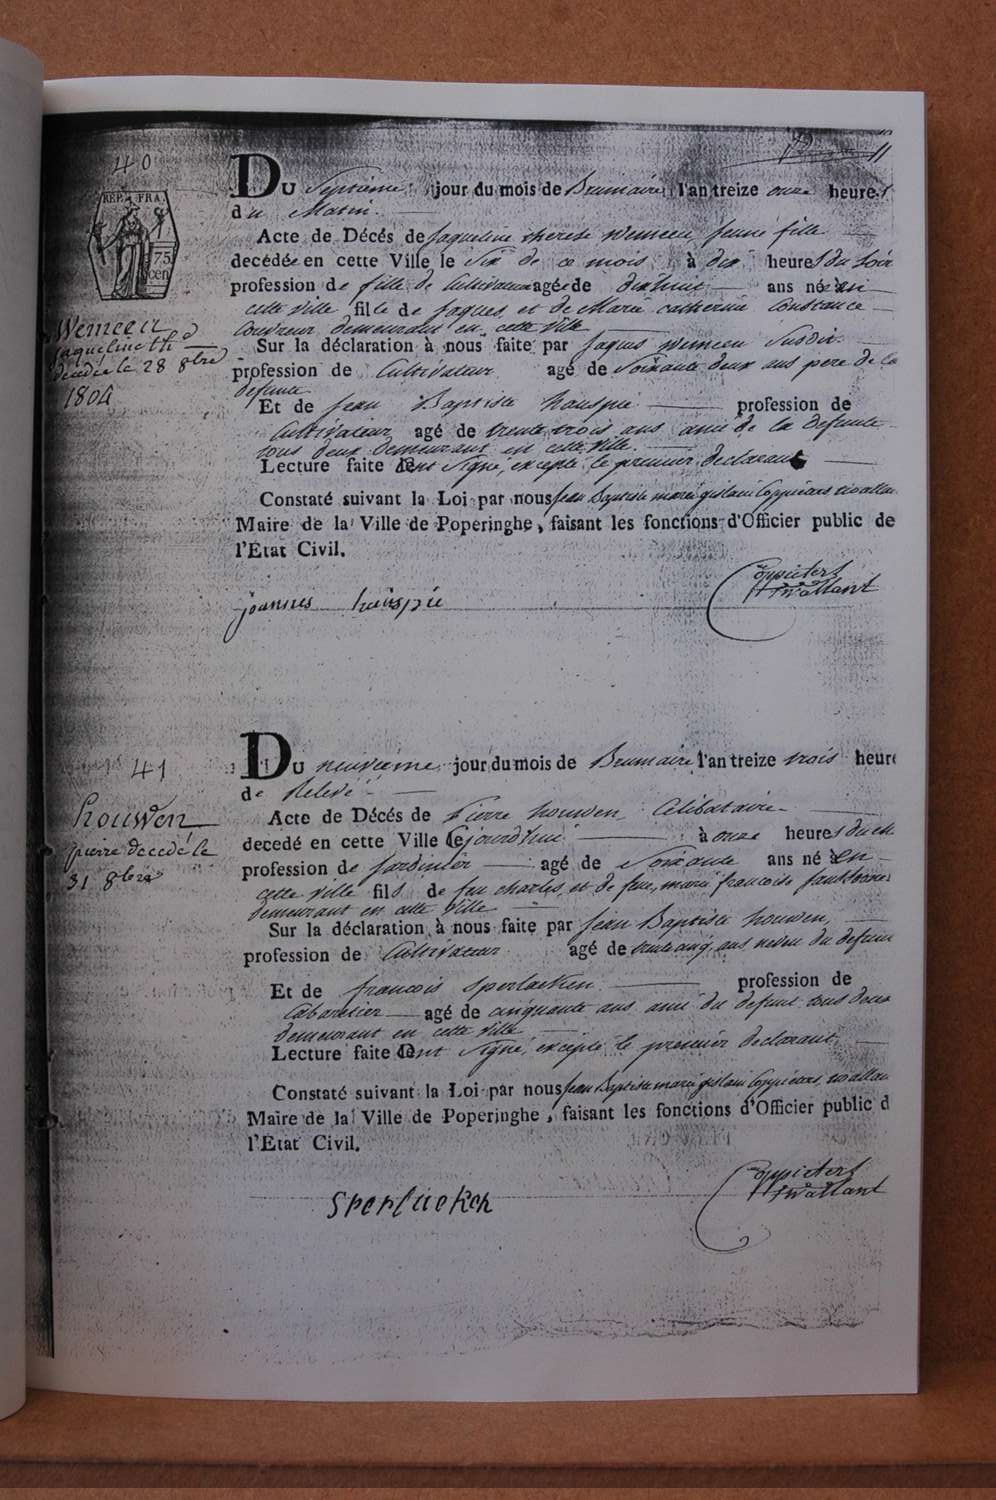 40
REP. FRA.
75
cen
Wemeeu
Jaqueline th
decedée le 28 8bre
1804
DU Septieme jour du mois de Brumaire l'an treize onze heures
du Matin.
Acte de Décés de Jaqueline therese Wemeeu jeune fille
decédée en cette Ville le Six de ce mois à dix heures du Soir
profession de fille de Cultivateur agée de dixhuit ans née en
cette ville fille de Jaques et de Marie Catherine Constance
Couvreur demeurant en cette ville
Sur la déclaration à nous faite par Jaques Wemeeu Susdit
profession de Cultivateur agé de Soixante deux ans pere de la
defunte
Et de Jean Baptiste houspie profession de
Cultivateur agé de trente trois ans amie de la Defunte
tous deux demeurant en cette ville.
Lecture faite ont Signé, excepté le premier declarant
Constaté suivant la Loi par nous Jean Baptiste marie gislain Coppieters wallant
Maire de la Ville de Poperinghe, faisant les fonctions d'Officier public de
l'État Civil.
joannes houspie
Coppieters
Wallant
41
houwen
pierre decedé le
31 8bre
DU neuvieme jour du mois de Brumaire l'an treize trois heure
de Relevé
Acte de Décés de Pierre houwen, Celibataire
decedé en cette Ville cejourd'hui à onze heures du
profession de Jardinier agé de Soixante ans né en
cette ville fils de feu charles, et de feue, marie françoise
demeurant en cette ville
Sur la déclaration à nous faite par Jean Baptiste houwen,
profession de Cultivateur agé de trente cinq ans neveu du defunt
Et de francois Sperlaeken profession de
Cabaretier agé de cinquante ans ami du defunt tous deux
demeurant en cette ville
Lecture faite ont Signé, excepté le premier declarant
Constaté suivant la Loi par nous Jean Baptiste marie gislain Coppieters wallant
Maire de la Ville de Poperinghe, faisant les fonctions d'Officier public d
l'État Civil.
Sperlaeken
Coppieters
Wallant